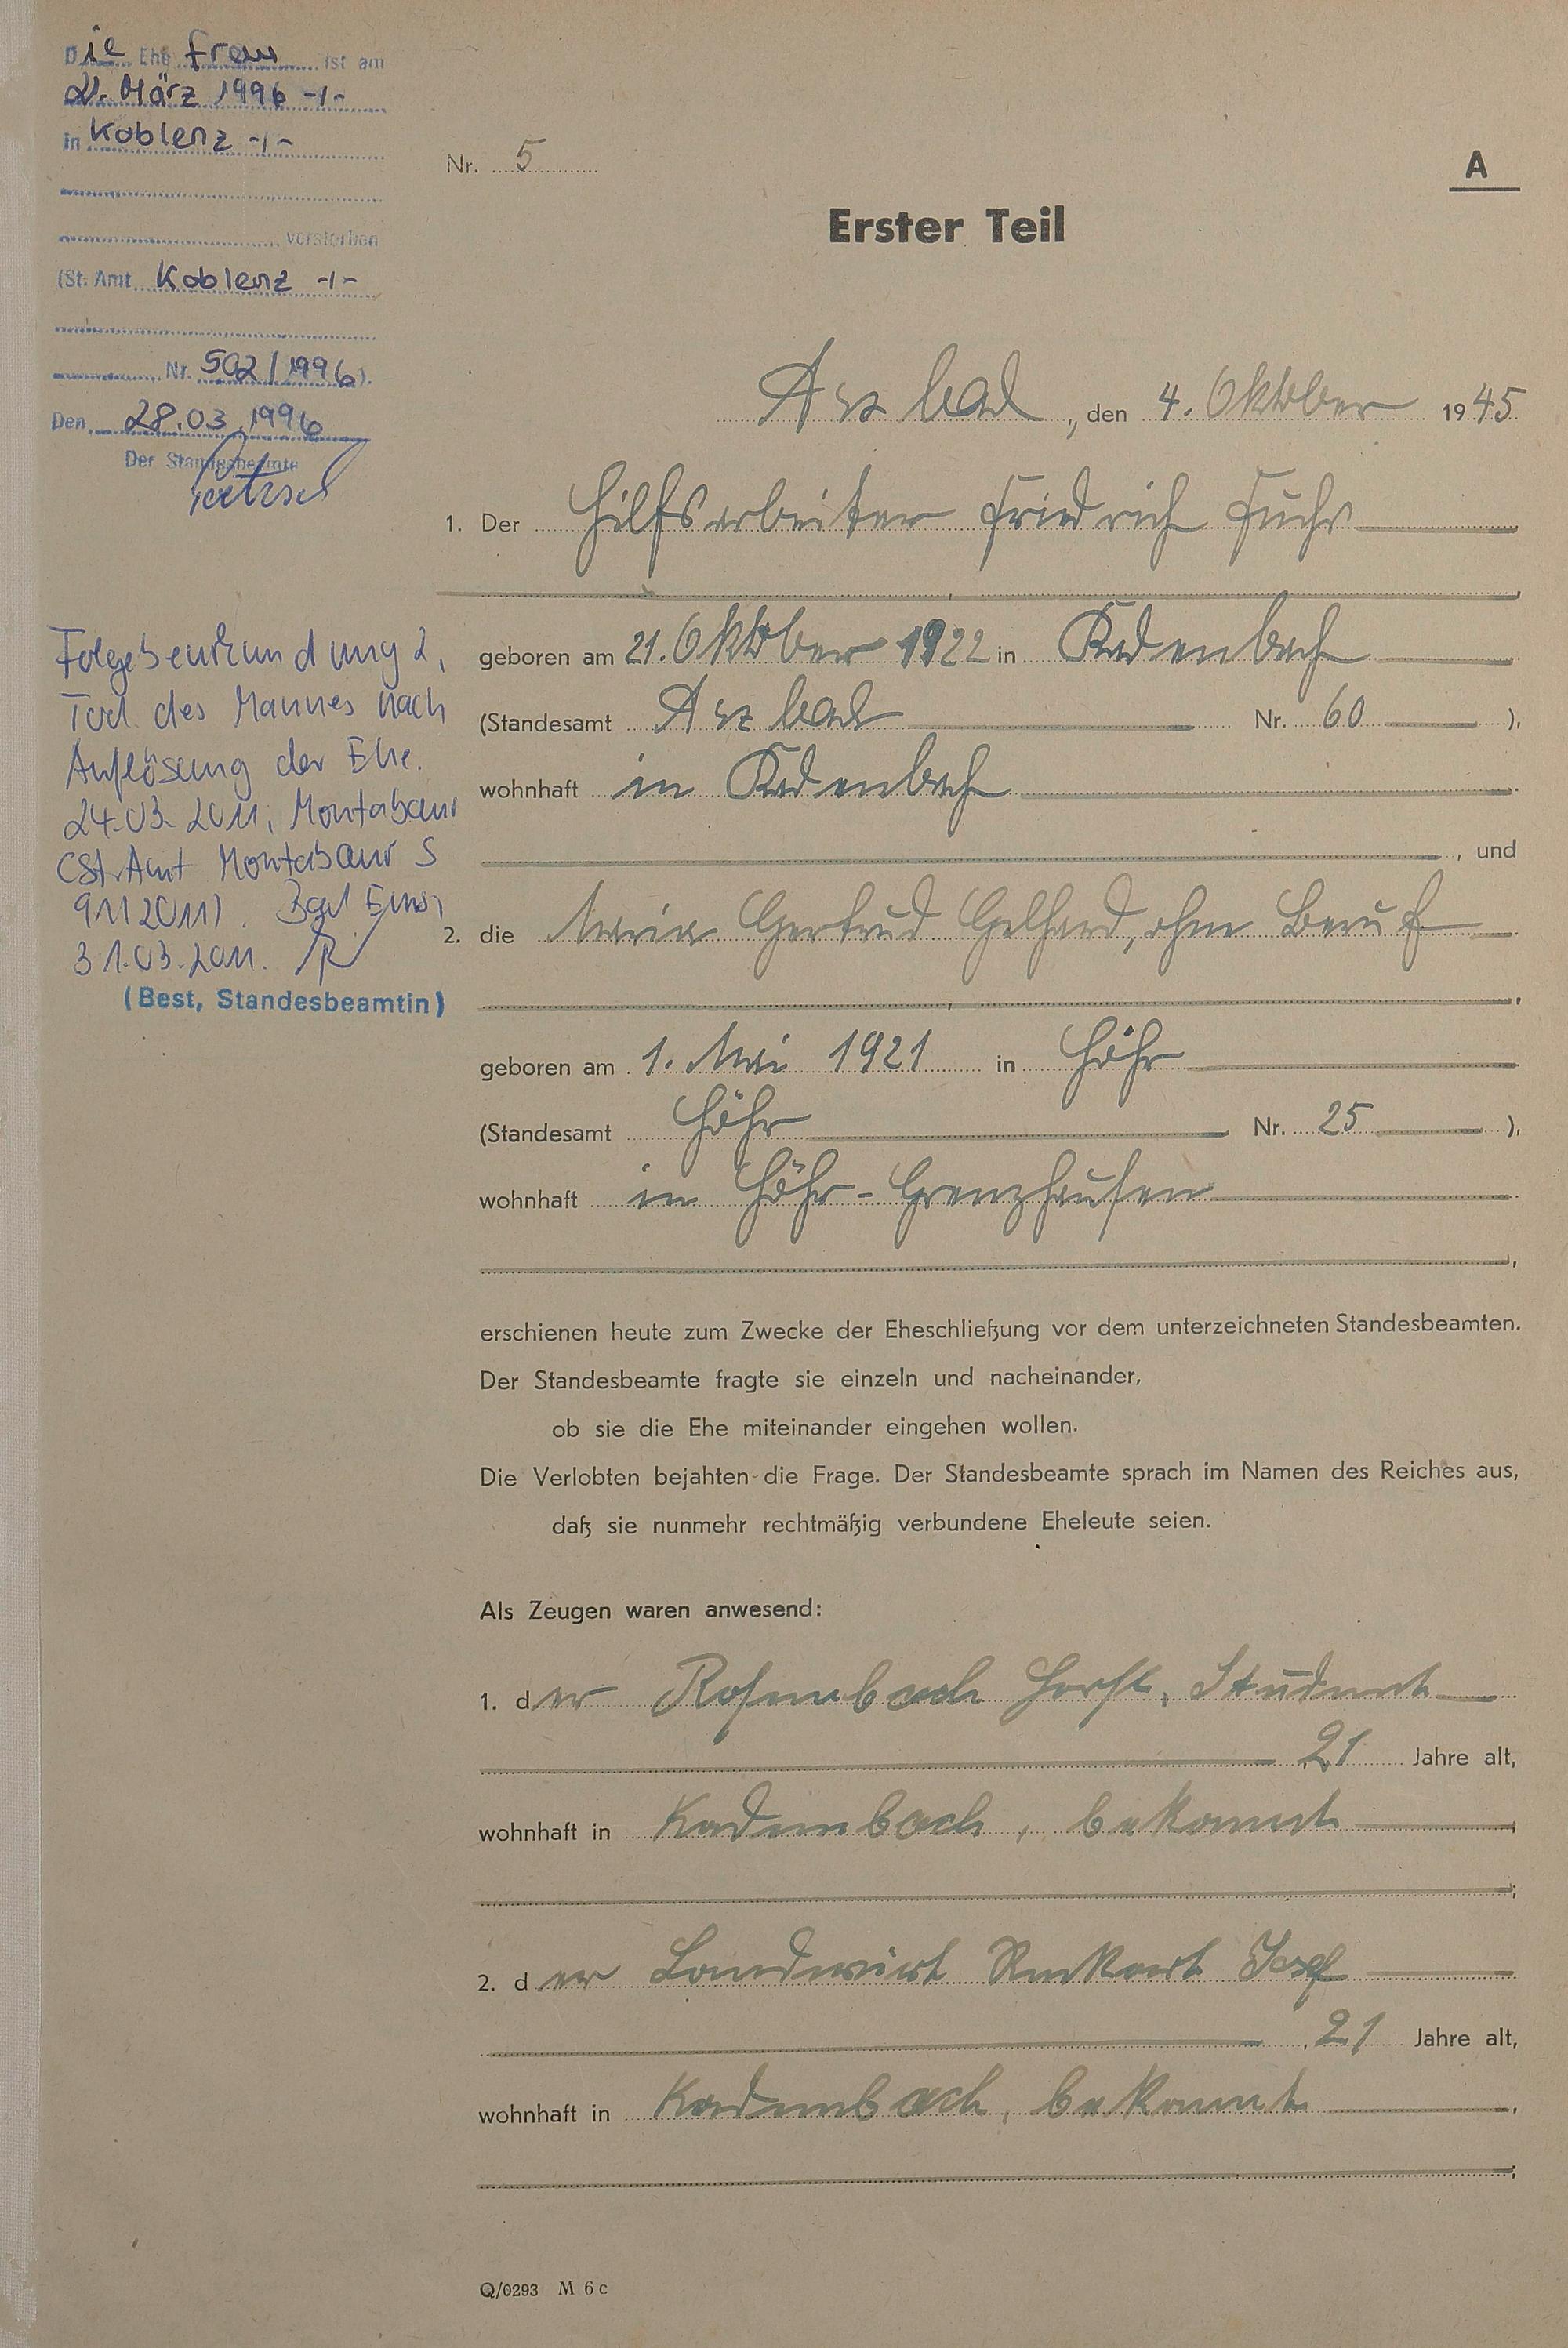 Die Ehefrau ist am
21. März 1996 -/-
in Koblenz -/-
verstorben
(St. Amt Koblenz -/-
Nr. 502/1996).
Den 28.03.1996
Der Standesbeamte
Folgebeurkundung 2,
Tod des Mannes nach
Auflösung der Ehe.
24.03.2011, Montabaur
(St.Amt Montabaur S
91/2011). Bad Ems,
31.03.2011.
(Best, Standesbeamtin)
Nr. 5
A
Erster Teil
Arzbach, den 4. Oktober 1945
1. Der Hilfsarbeiter Friedrich Fuchs
geboren am 21. Oktober 1922 in Kadenbach
(Standesamt Arzbach Nr. 60 ),
wohnhaft in Kadenbach
, und
2. die Maria Gertrud Gelhard, ohne Beruf
geboren am 1. Mai 1921 in Höhr
(Standesamt Höhr Nr. 25 ),
wohnhaft in Höhr-Grenzhausen
erschienen heute zum Zwecke der Eheschließung vor dem unterzeichneten Standesbeamten.
Der Standesbeamte fragte sie einzeln und nacheinander,
ob sie die Ehe miteinander eingehen wollen.
Die Verlobten bejahten die Frage. Der Standesbeamte sprach im Namen des Reiches aus,
daß sie nunmehr rechtmäßig verbundene Eheleute seien.
Als Zeugen waren anwesend:
1. der Rosenbach Horst, Student
21 Jahre alt,
wohnhaft in Kadenbach, bekannt
2. der Landwirt Josef
21 Jahre alt,
wohnhaft in Kadenbach, bekannt
Q/0293 M 6 c